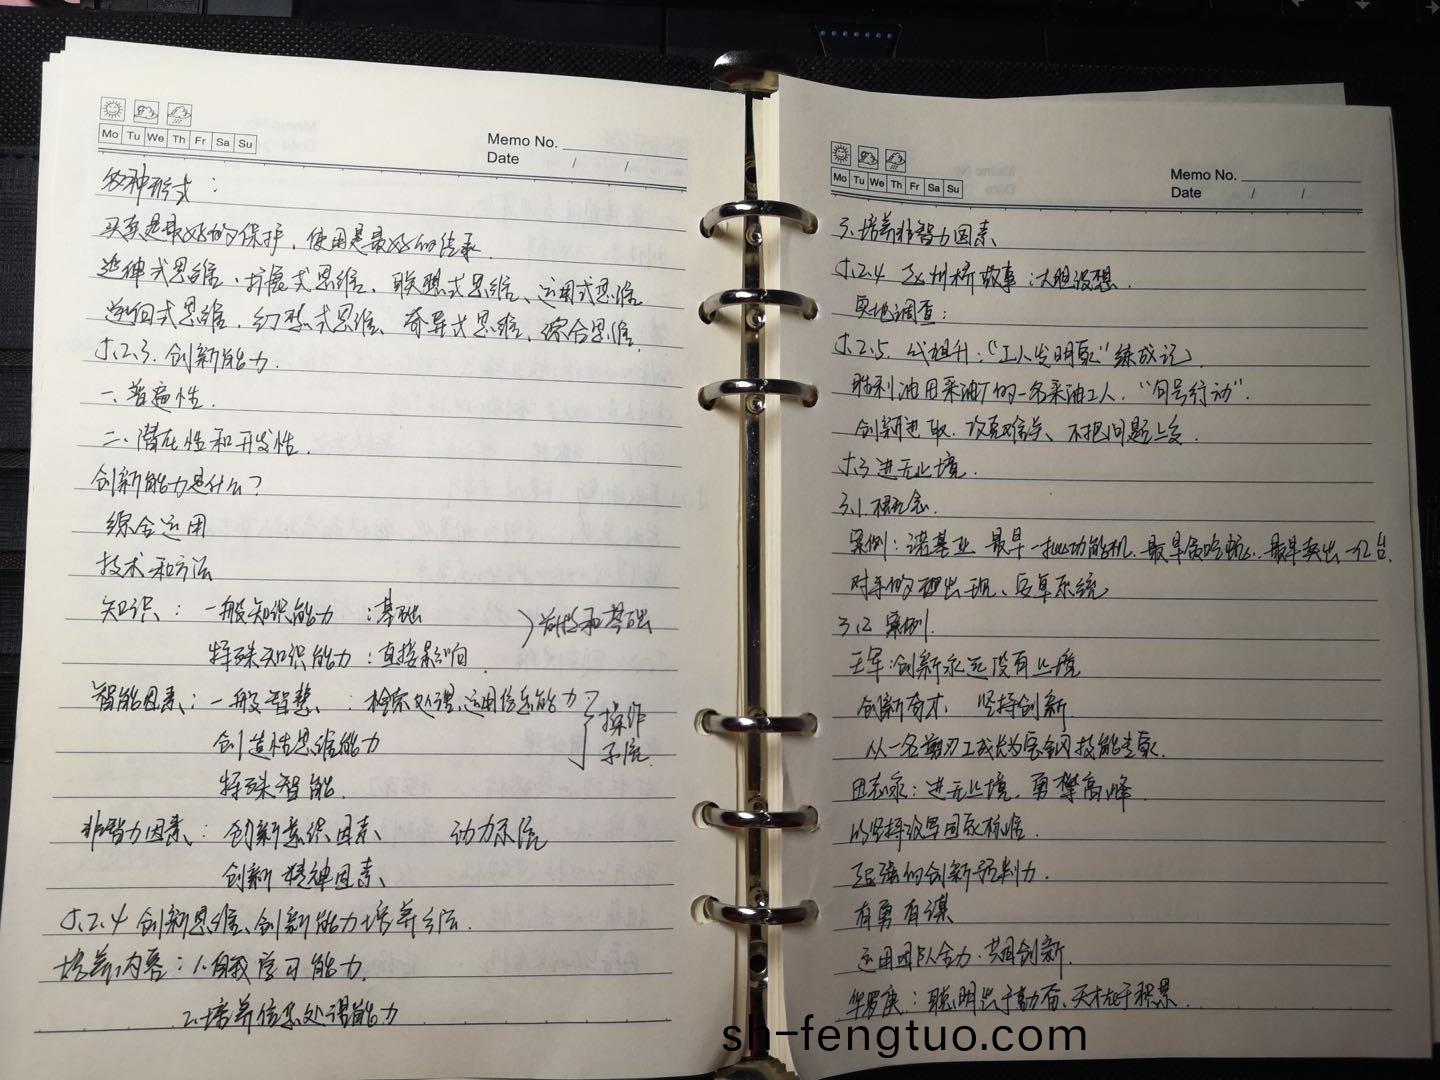 Mo Tu We Th Fr Sa Su
Memo No.
Date / /
各种形式：
买卖是最好的保护，使用是最好的传承
延伸式思维、扩展式思维、联想式思维、运用式思维
逆向式思维、幻想式思维、奇异式思维、综合思维.
5.2.3. 创新能力.
一. 普遍性.
二. 潜在性和开发性.
创新能力是什么?
综合运用
技术和方法
知识： 一般知识能力 :基础
前提和基础
特殊知识能力：直接影响
智能因素：一般智慧 ：检索处理、运用信息能力
操作
系统.
创造性思维能力
特殊智能.
非智力因素：创新意识因素 动力系统
创新精神因素
5.2.4 创新思维、创新能力培养方法.
培养内容：1.自我学习能力.
2.培养信息处理能力
Mo Tu We Th Fr Sa Su
Memo No.
Date / /
3.培养非智力因素
5.2.4 赵州桥故事：大胆设想.
实地调查：
5.2.5. 代旭升：“工人发明家”练成记
胜利油田采油厂的一名采油工人. “句号行动”.
创新进取. 攻克难关、不把问题上交.
5.3 进无止境.
3.1 概念.
案例：诺基亚 最早一批功能机. 最早 最早卖出一亿台.
对手的 出现、安卓系统
3.2 案例.
王军：创新永远没有止境
创新奇才 坚持创新
从一名剪刃工成长为宝钢技能专家.
田志永：进无止境. 勇攀高峰
以坚持改写国家标准.
超强的创新预判力.
有勇有谋
运用团队合力. 共同创新.
华罗庚：聪明出于勤奋，天才在于积累.
sh-fengtuo.com